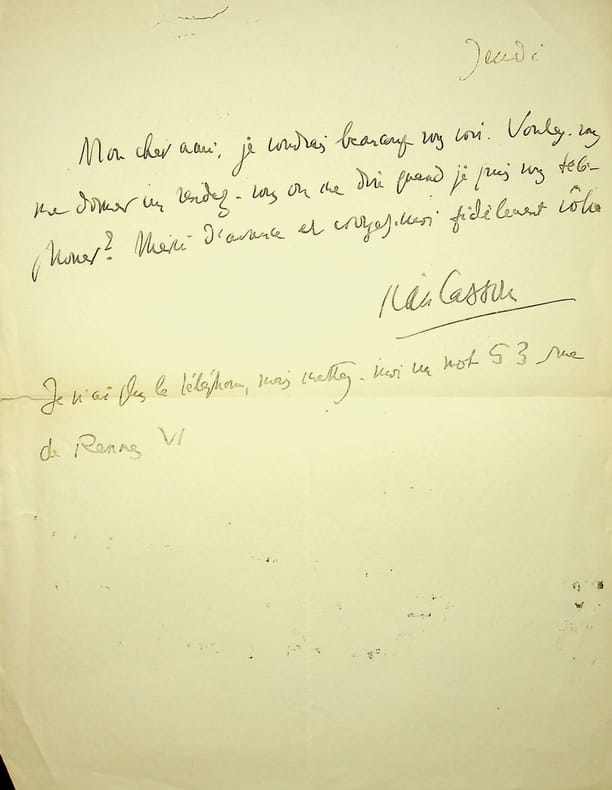 Jeudi
Mon cher ami, je voudrais beaucoup vous voir. Voulez-vous
me donner un rendez-vous ou me dire quand je puis vous télé-
phoner? Merci d'avance et croyez-moi fidèlement vôtre
Jean Cassou
Je n'ai plus le téléphone, mais mettez-moi un mot 53 rue
de Rennes VI